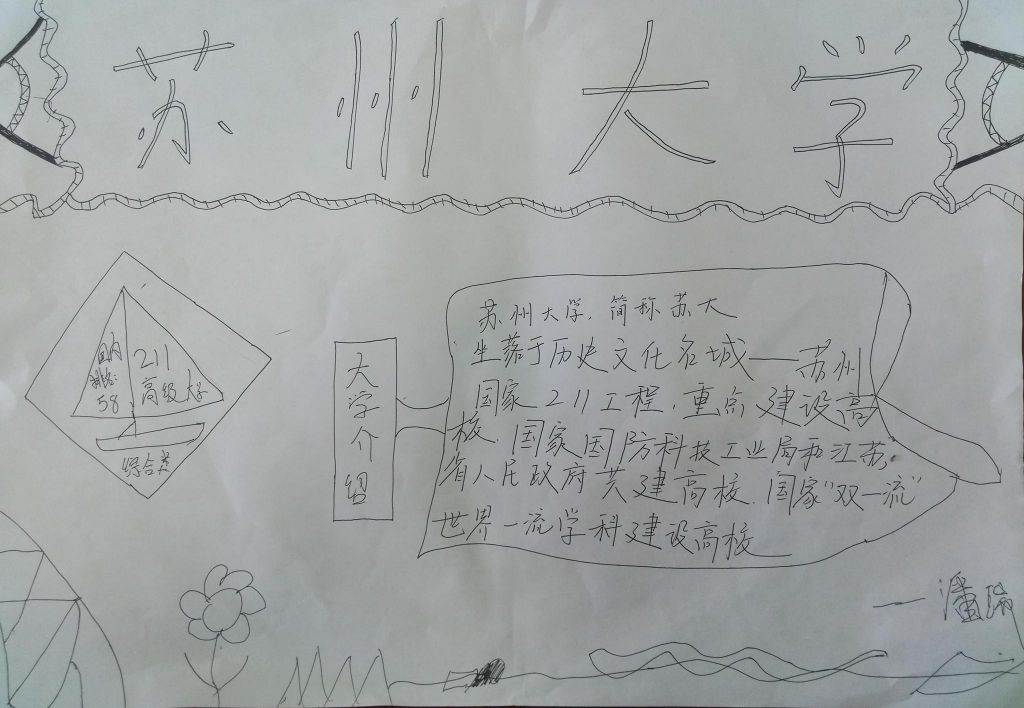 苏州大学
国内
排名:
58
211
高级大学
综合类
大学介绍
苏州大学,简称苏大
坐落于历史文化名城——苏州
国家211工程,重点建设高
校.国家国防科技工业局和江苏
省人民政府共建高校.国家"双一流"
世界一流学科建设高校
—潘瑞